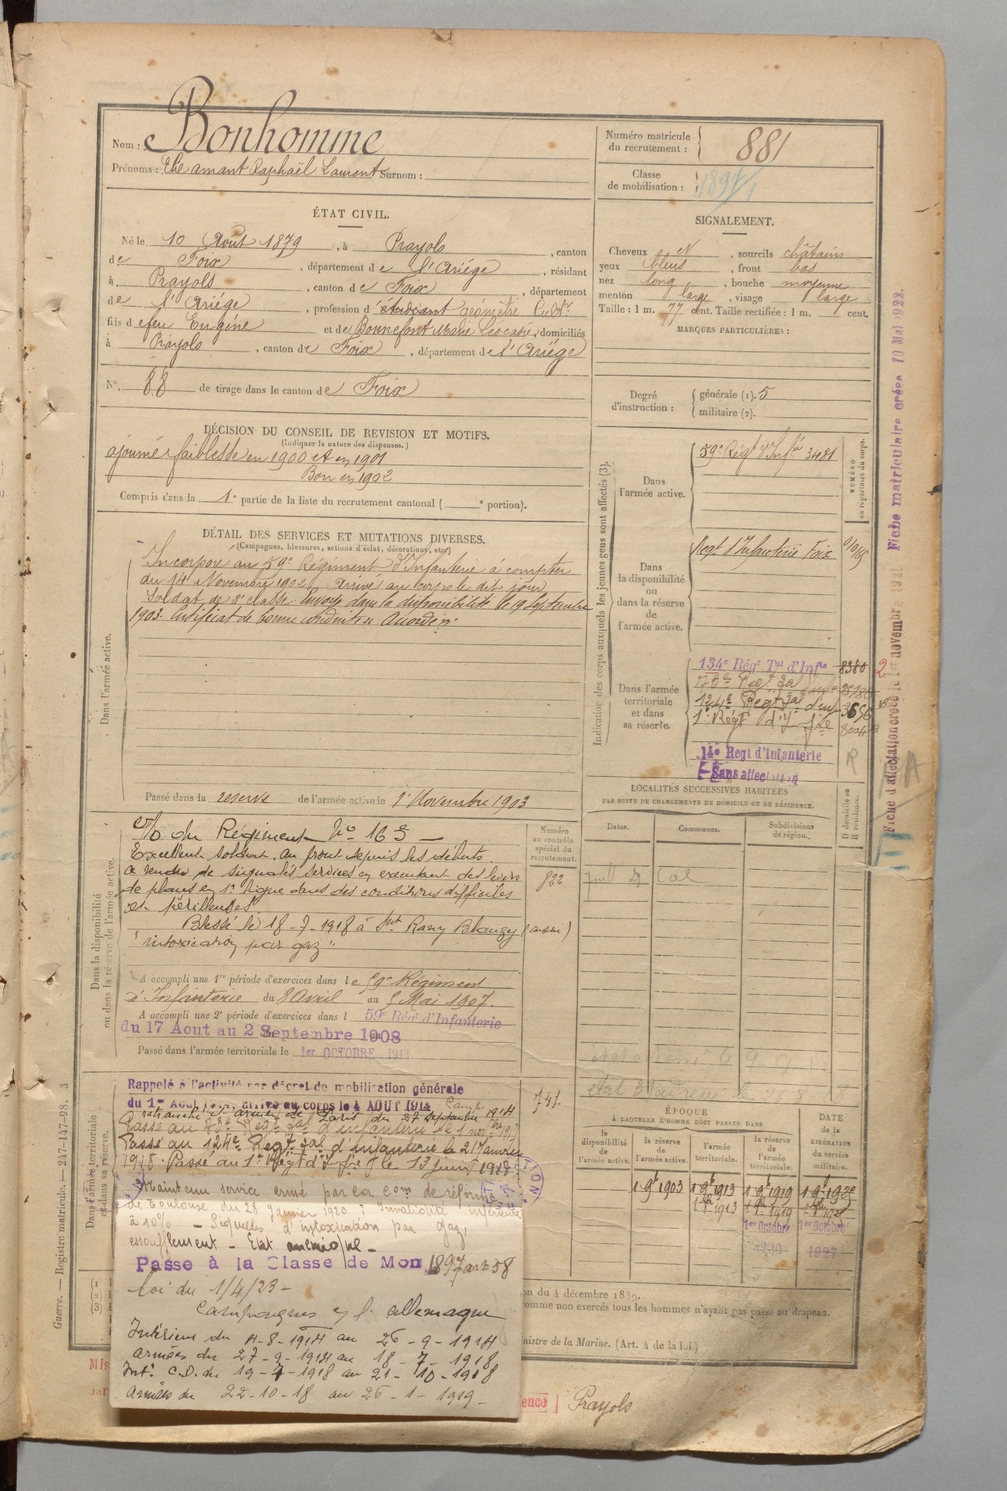 Nom : Bonhomme
Prénoms : Elie amant Raphaël Laurent Surnom :
Numéro matricule du recrutement : 881
Classe de mobilisation : 1897
ÉTAT CIVIL.
Né le 10 Août 1879, à Prayols, canton
de Foix, département de l'Ariège, résidant
à Prayols, canton de Foix, département
de l'Ariège, profession d'étudiant Géomètre
fils de feu Eugène et de Bonnefont Marie Léocadie, domiciliés
à Prayols, canton de Foix, département de l'Ariège
N°. 88 de tirage dans le canton de Foix
SIGNALEMENT.
Cheveux N, sourcils châtains
yeux bleus, front bas
nez long, bouche moyenne
menton large, visage large
Taille : 1 m. 77 cent. Taille rectifiée : 1 m. cent.
MARQUES PARTICULIÈRES :
Degré d'instruction : générale (1). 5
militaire (2).
DÉCISION DU CONSEIL DE REVISION ET MOTIFS.
(Indiquer la nature des dispenses.)
ajourné faiblesse en 1900 et en 1901
Bon en 1902
Compris dans la 1e partie de la liste du recrutement cantonal ( e portion).
DÉTAIL DES SERVICES ET MUTATIONS DIVERSES.
(Campagnes, blessures, actions d'éclat, décorations, etc.)
Dans l'armée active.
Incorporé au 59e Régiment d'Infanterie à compter
du 14 Novembre 1902. Arrivé au corps le dit jour,
Soldat de 2e classe. Envoyé dans la disponibilité le 19 septembre
1903. Certificat de bonne conduite Accordé.
Passé dans la reserve de l'armée active le 1er Novembre 1903
Indication des corps auxquels les jeunes gens sont affectés (3).
NUMÉRO au répertoire du corps.
Dans l'armée active.
59e Régt d'Infie 3481
Dans la disponibilité ou dans la réserve de l'armée active.
Régt d'Infanterie Foix
Dans l'armée territoriale et dans sa réserve.
134e Régt Tal d'Infie 8380
124e Régt Tal d'inf
1er Régt d'Infie
14e Regt d'Infanterie
Sans affectation
Fiche d'affectation créée le novembre 1921 Fiche matriculaire créée 10 Mai 1922.
LOCALITÉS SUCCESSIVES HABITÉES
PAR SUITE DE CHANGEMENTS DE DOMICILE OU DE RÉSIDENCE.
Dates. Communes. Subdivisions de région. D domicile ou R résidence.
Dans la disponibilité ou dans la réserve de l'armée active.
Numéro au contrôle spécial du recrutement.
822
O/o du Régiment No 163
Excellent soldat. Au front depuis les débuts
a rendu de signalés services en executant des levers
de plans en 1e ligne dans des conditions difficiles
et périlleuses.
Blessé le 18-7-1918 à St Rémy Blanzy (aisne)
"intoxication par gaz"
A accompli une 1re période d'exercices dans le 59e Régiment
d'Infanterie du 8 Avril au 5 Mai 1907.
A accompli une 2e période d'exercices dans l 59e Régt d'Infanterie
du 17 Aout au 2 Septembre 1908
Passé dans l'armée territoriale le 1er OCTOBRE 1913
Dans l'armée territoriale et dans sa réserve.
Rappelé à l'activité par décret de mobilisation générale
du 1er Août 1914, arrivé au corps le 4 AOUT 1914
741
Passé au 124e Régt Tal d'infanterie le 21 Janvier
1918. Passé au 1er Régt d'Infie le 13 juin 1918
Maintenu service armé par con com de réforme
de Toulouse du 28 Janvier 1920 : Invalidité inférieure
à 10% - Séquelles d'intoxication par gaz,
essoufflement - Etat anémique -
Passe à la Classe de Mon 1897 art 58
loi du 1/4/23 -
Campagnes c/ l'allemagne
Intérieur du 4-8-1914 au 26-9-1914
armées du 27-9-1914 au 18-7-1918
Int. C.D. du 19-7-1918 au 21-10-1918
Armées du 22-10-18 au 26-1-1919 -
ÉPOQUE
À LAQUELLE L'HOMME DOIT PASSER DANS
la disponibilité de l'armée active. la réserve de l'armée active. l'armée territoriale. la réserve de l'armée territoriale. DATE DE LA LIBÉRATION du service militaire.
1-9e 1903 1-9e 1913 1-9e 1919
1er Octobre 1er Octobre
on du 4 décembre 1889.
omme non exercés tous les hommes n'ayant pas passé au drapeau.
nistre de la Marine. (Art. 4 de la loi.)
ence Prayols
Guerre. — Registre matricule. — 247-147-98. 3